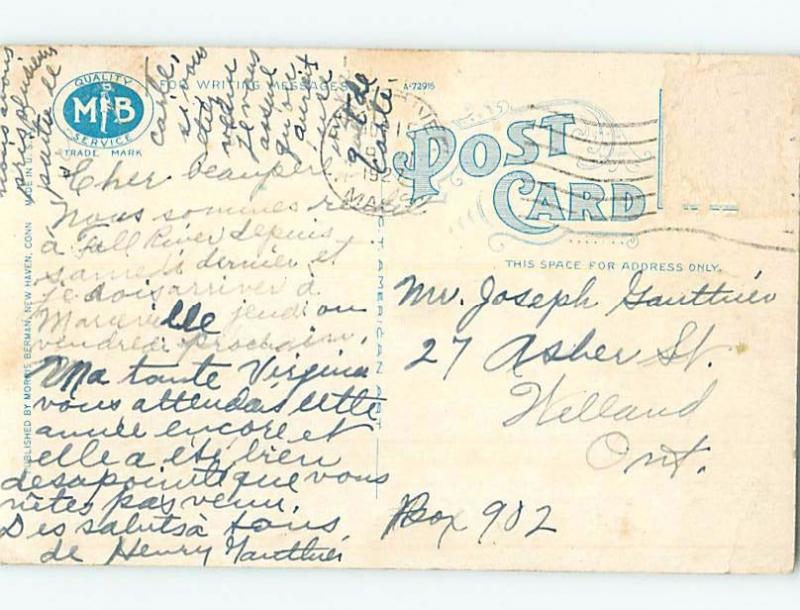 QUALITY
M B
SERVICE
TRADE MARK
FOR WRITING MESSAGES
A-72915
POST
CARD
THIS SPACE FOR ADDRESS ONLY.
PUBLISHED BY MORRIS BERMAN, NEW HAVEN, CONN. MADE IN U.S.A.
C.T. AMERICAN ART
Cher beaupère
Nous sommes
à Fall River depuis
samedi dernier et
je dois arriver à
jeudi ou
vendredi prochain.
Ma tante Virginia
vous attendas cette
année encore et
elle a été bien
desapointé que vous
n'êtes pas venu.
Des saluts à tous
de Henry Gauthier
nous avons
pris plusieurs
parties de
carte,
si vous
etiez
venu
je vous
assure
qu'on
aurait
une
de
carte
Mr. Joseph Gauthier
27 Asher St.
Welland
Ont.
Box 902